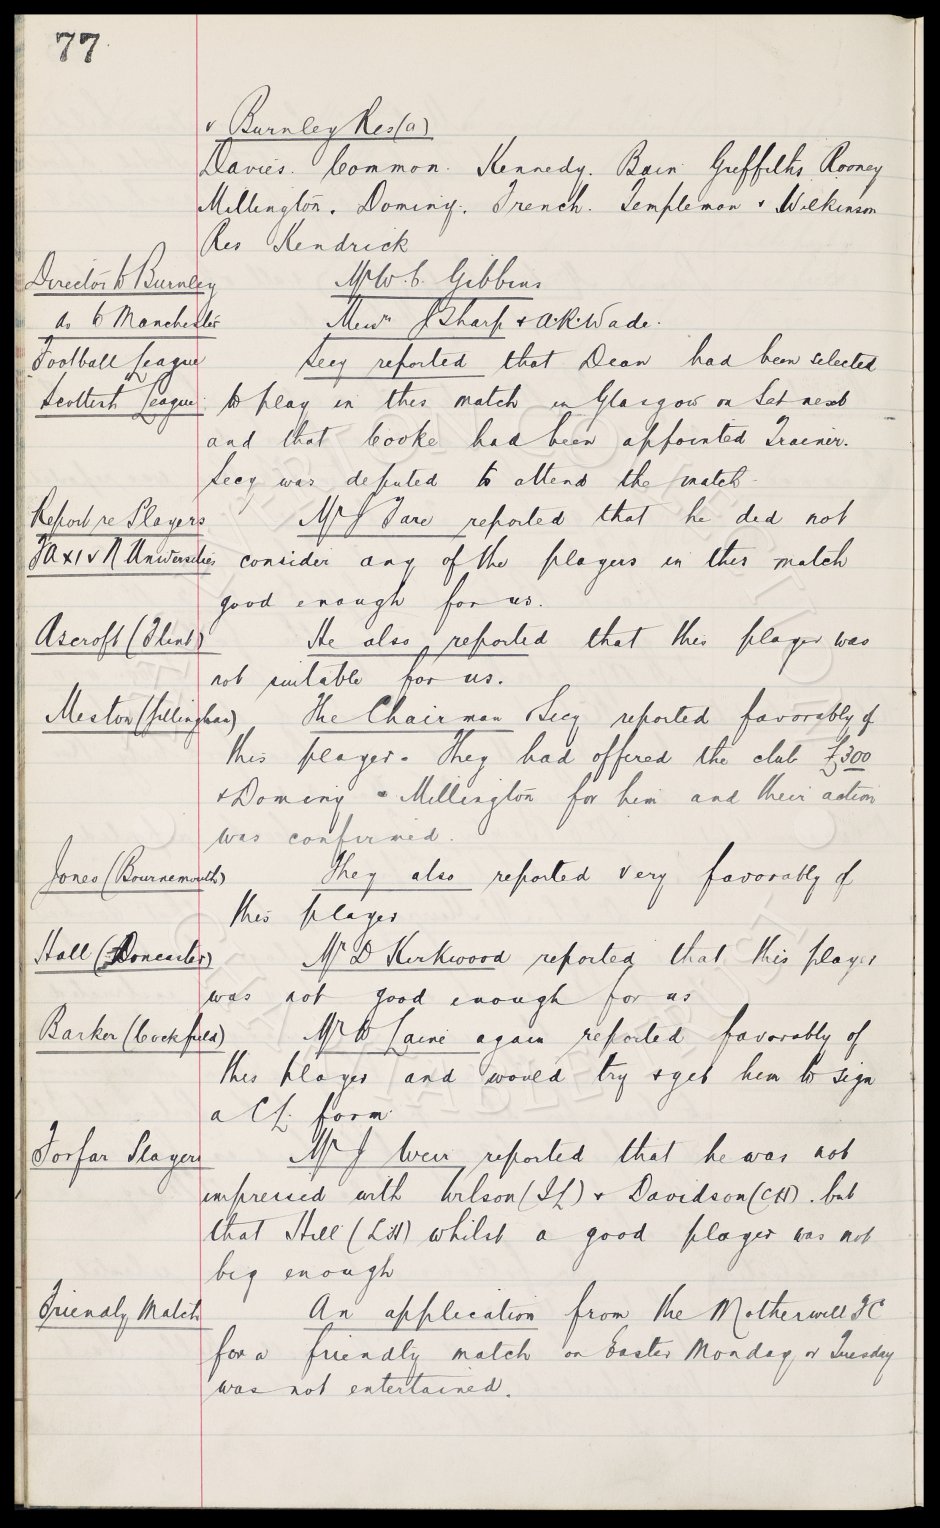 77
v Burnley Res (a)
Davies. Common. Kennedy. Bain Greffiths Rooney
Millington. Dominy. French. Templeman & Wilkinson
Res Kendrick
Director to Burnley Mr W. C. Gibbins
do to Manchester Messrs J Sharp & A.R. Wade.
Football League Secy reported that Dean had been selected
v Scottish League. to play in this match in Glasgow on Sat next
and that Cooke had been appointed Trainer.
Secy was deputed to attend the match.
Report re Players Mr J Fare reported that he did not
FA XI v N Universities consider any of the players in this match
good enough for us.
Ascroft (Flint) He also reported that this player was
not suitable for us.
Meston (Gillingham) The Chairman & Secy reported favorably of
this player. They had offered the club £300
& Dominy & Millington for him and their action
was confirmed.
Jones (Bournemouth) They also reported very favorably of
this player
Hall (Doncaster) Mr D Kirkwood reported that this player
was not good enough for us
Barker (Cockfield) Mr W Laine again reported favorably of
this player and would try & get him to sign
a CL form
Forfar Players Mr J Weir reported that he was not
impressed with Wilson (IL) & Davidson (CH). but
that Hill (LH) whilst a good player was not
big enough
Friendly Match An application from the Motherwell FC
for a friendly match on Easter Monday or Tuesday
was not entertained.